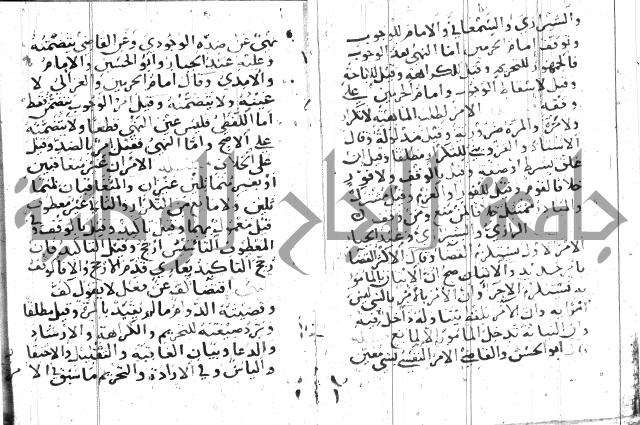 والشيرازي والسمعاني والامام للوجوب
وتوقف امام الحرمين اما النهي بعد الوجوب
فالجمهور للتحريم وقيل للكراهة وقيل للاباحة
وقيل لاسقاط الوجوب وامام الحرمين على
وقفه الامر لطلب الماهية لا لتكرار
ولا مرة والمرة ضرورية وقيل مدلولة وقال
الاستاذ والقزويني للتكرار مطلقا وقيل ان
علق بشرط او صفة وقيل بالوقف ولا لفور
خلافا لقوم وقيل للفور او العزم وقيل مشترك
والمبادر ممتثل خلافا لمن منع ومن وقف
الرازي والشيرازي وعبد الجبار
الامر يستلزم القضا وقال الاكثر القضا
بامر جديد ان الاتيان بالمامور
به يستلزم الاجزا وان الامر بالامر بالشي ليس
امرا به وان الامر بلفظ يتناوله داخل فيه
وان النيابة تدخل المامور الا لمانع
ابو الحسن والقاضي الامر النفسي بشي معين
نهي عن ضده الوجودي وعن القاضي يتضمنه
وعليه عبد الجبار وابو الحسين والامام
والامدي وقال امام الحرمين والغزالي لا
عينه ولا يتضمنه وقيل امر الوجوب يتضمن فقط
اما اللفظي فليس عين النهي قطعا ولا يتضمنه
على الاصح واما النهي فقيل امر بالضد وقيل
على الخلاف الامران غير متعاقبين
او بغير متماثلين غيران والمتعاقبان بمتما
ثلين ولا مانع من التكرار والثاني غير معطوف
قيل معمول بهما وقيل تاكيد وقيل بالوقف وفي
المعطوف التاسيس ارجح وقيل التاكيد فان
رجح التاكيد بعادي قدم الارجح والا فالوقف
اقتضا كف عن فعل لا بقول كف
وقضيته الدوام ما لم يقيد بالمرة وقيل مطلقا
وترد صيغته للتحريم والكراهة والارشاد
والدعا وبيان العاقبة والتقليل والاحتقا
والياس وفي الارادة والتحريم ما سبق في الا
جامعة النجاح الوطنية